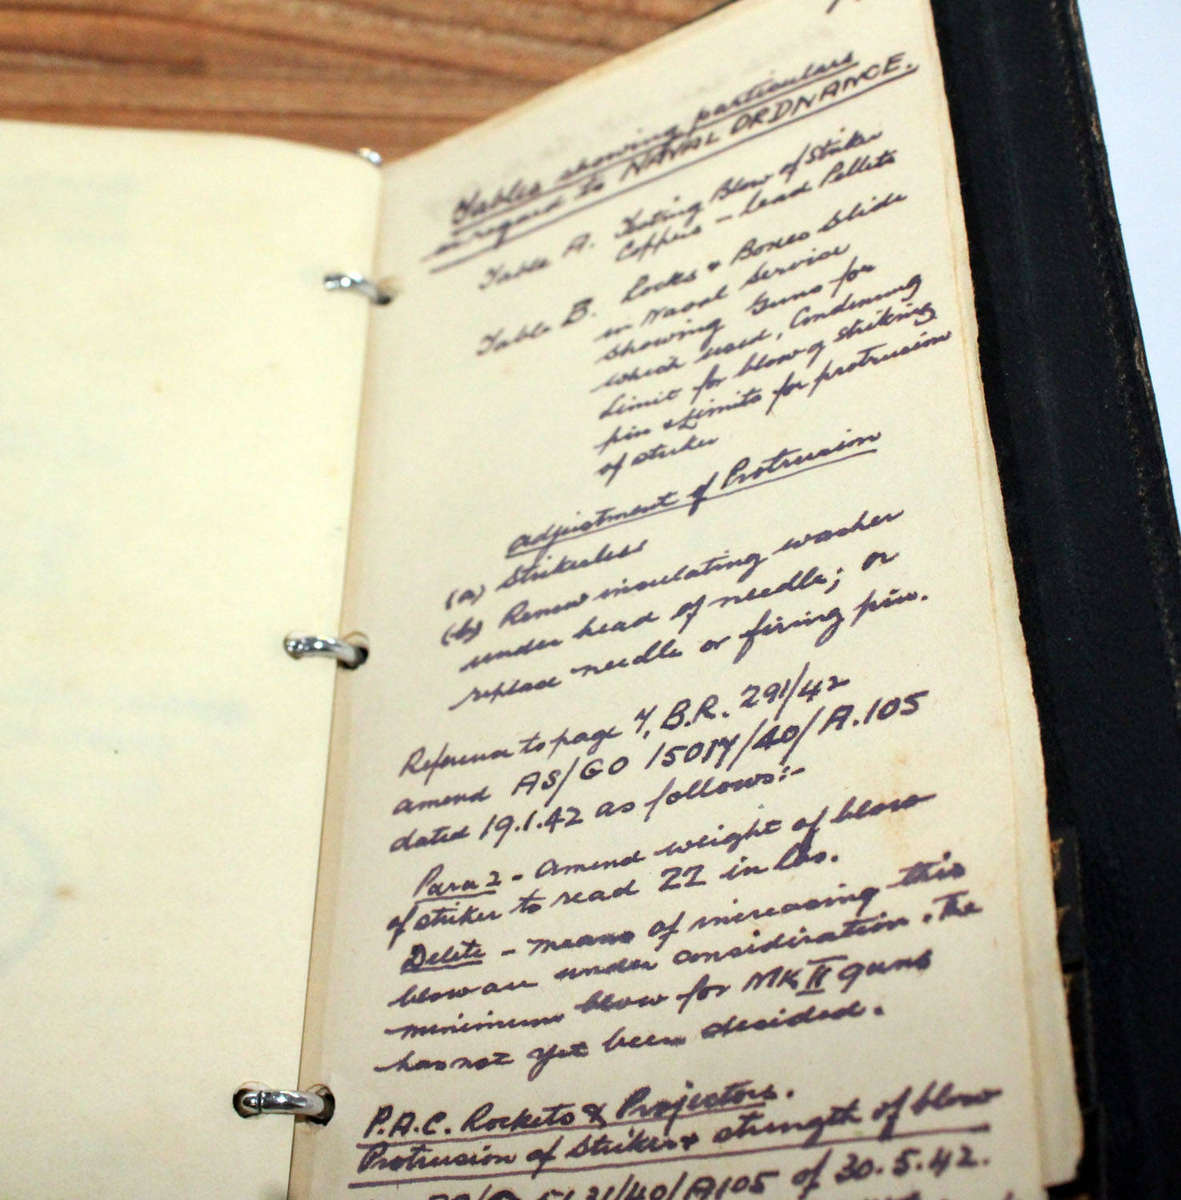 Tables showing particulars
in regard to NAVAL ORDNANCE.
Table A. Testing Blow of Striker
Coppers - Lead Pellets
Table B. Locks & Boxes Slide
in Naval Service
showing Guns for
which used, Condemning
Limit for blow of striking
pin & Limits for protrusion
of striker
Adjustment of Protrusion
(a) Strikerless
(b) Renew insulating washer
under head of needle; or
replace needle or firing pin.
Reference to page 7, B.R. 291/42
amend AS/GO 15017/40/A.105
dated 19.1.42 as follows:-
Para 2 - Amend weight of blow
of striker to read 22 in lbs.
Delete - means of increasing this
blow are under consideration. The
minimum blow for MK II guns
has not yet been decided.
P.A.C. Rockets & Projectors.
Protrusion of Striker & strength of blow
5131/40/A105 of 30.5.42.